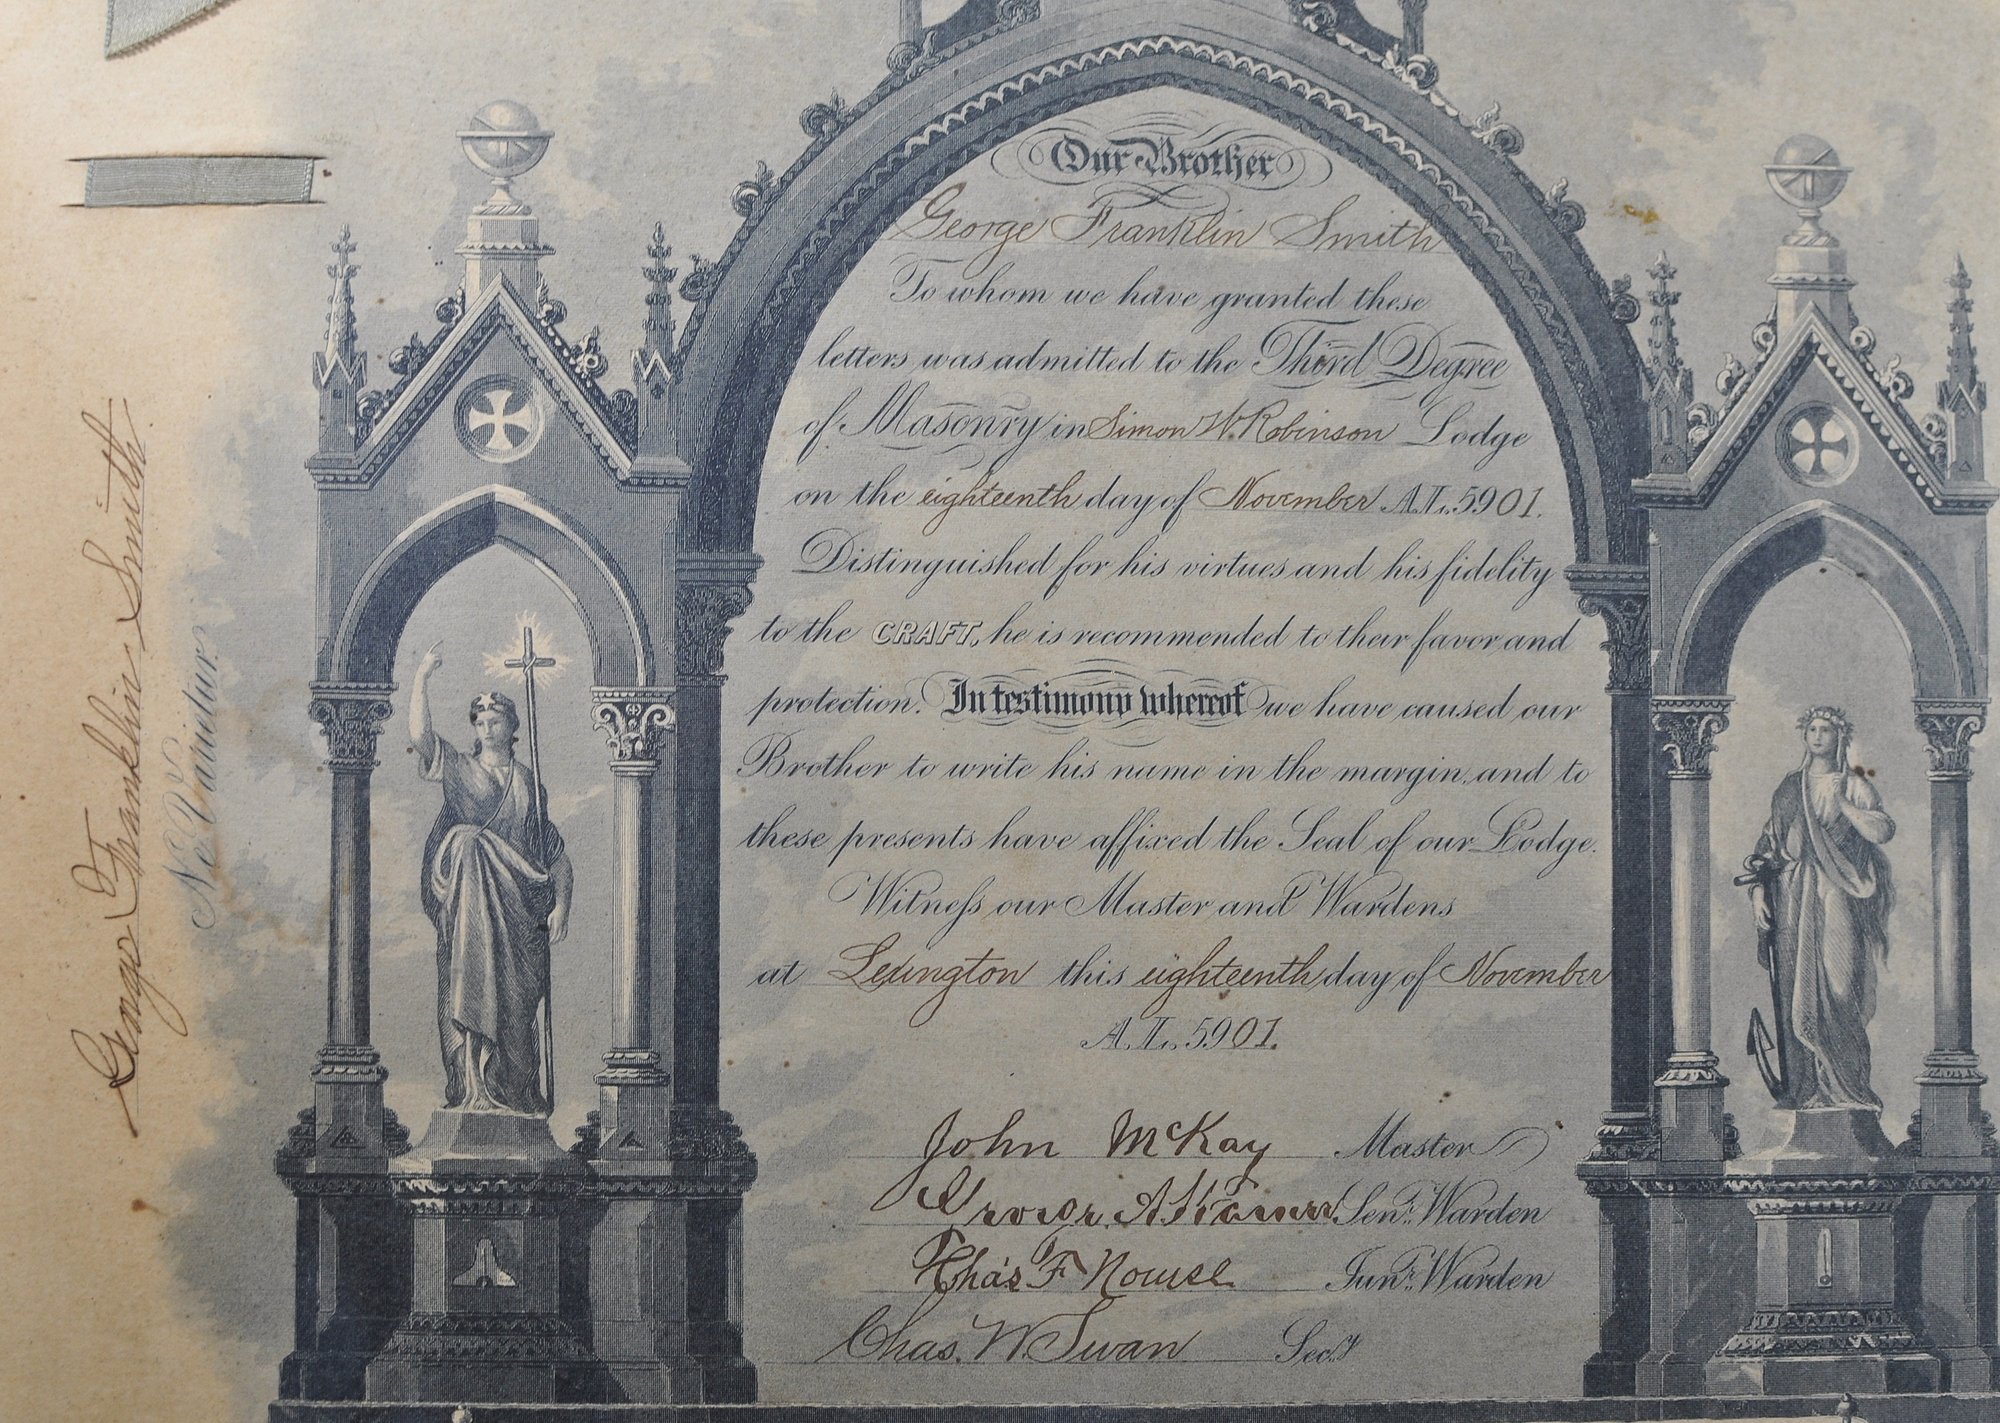 Our Brother
George Franklin Smith
To whom we have granted these
letters was admitted to the Third Degree
of Masonry in Simon W. Robinson Lodge
on the eighteenth day of November A.L. 5901.
Distinguished for his virtues and his fidelity
to the CRAFT, he is recommended to their favor and
protection. In testimony whereof we have caused our
Brother to write his name in the margin, and to
these presents have affixed the Seal of our Lodge.
Witneſs our Master and Wardens
at Lexington this eighteenth day of November
A.L. 5901.
John McKay Master
Senr. Warden
Chas. F. Nourse Junr. Warden
Chas. W. Swan Secy.
George Franklin Smith
Ne Varietur.